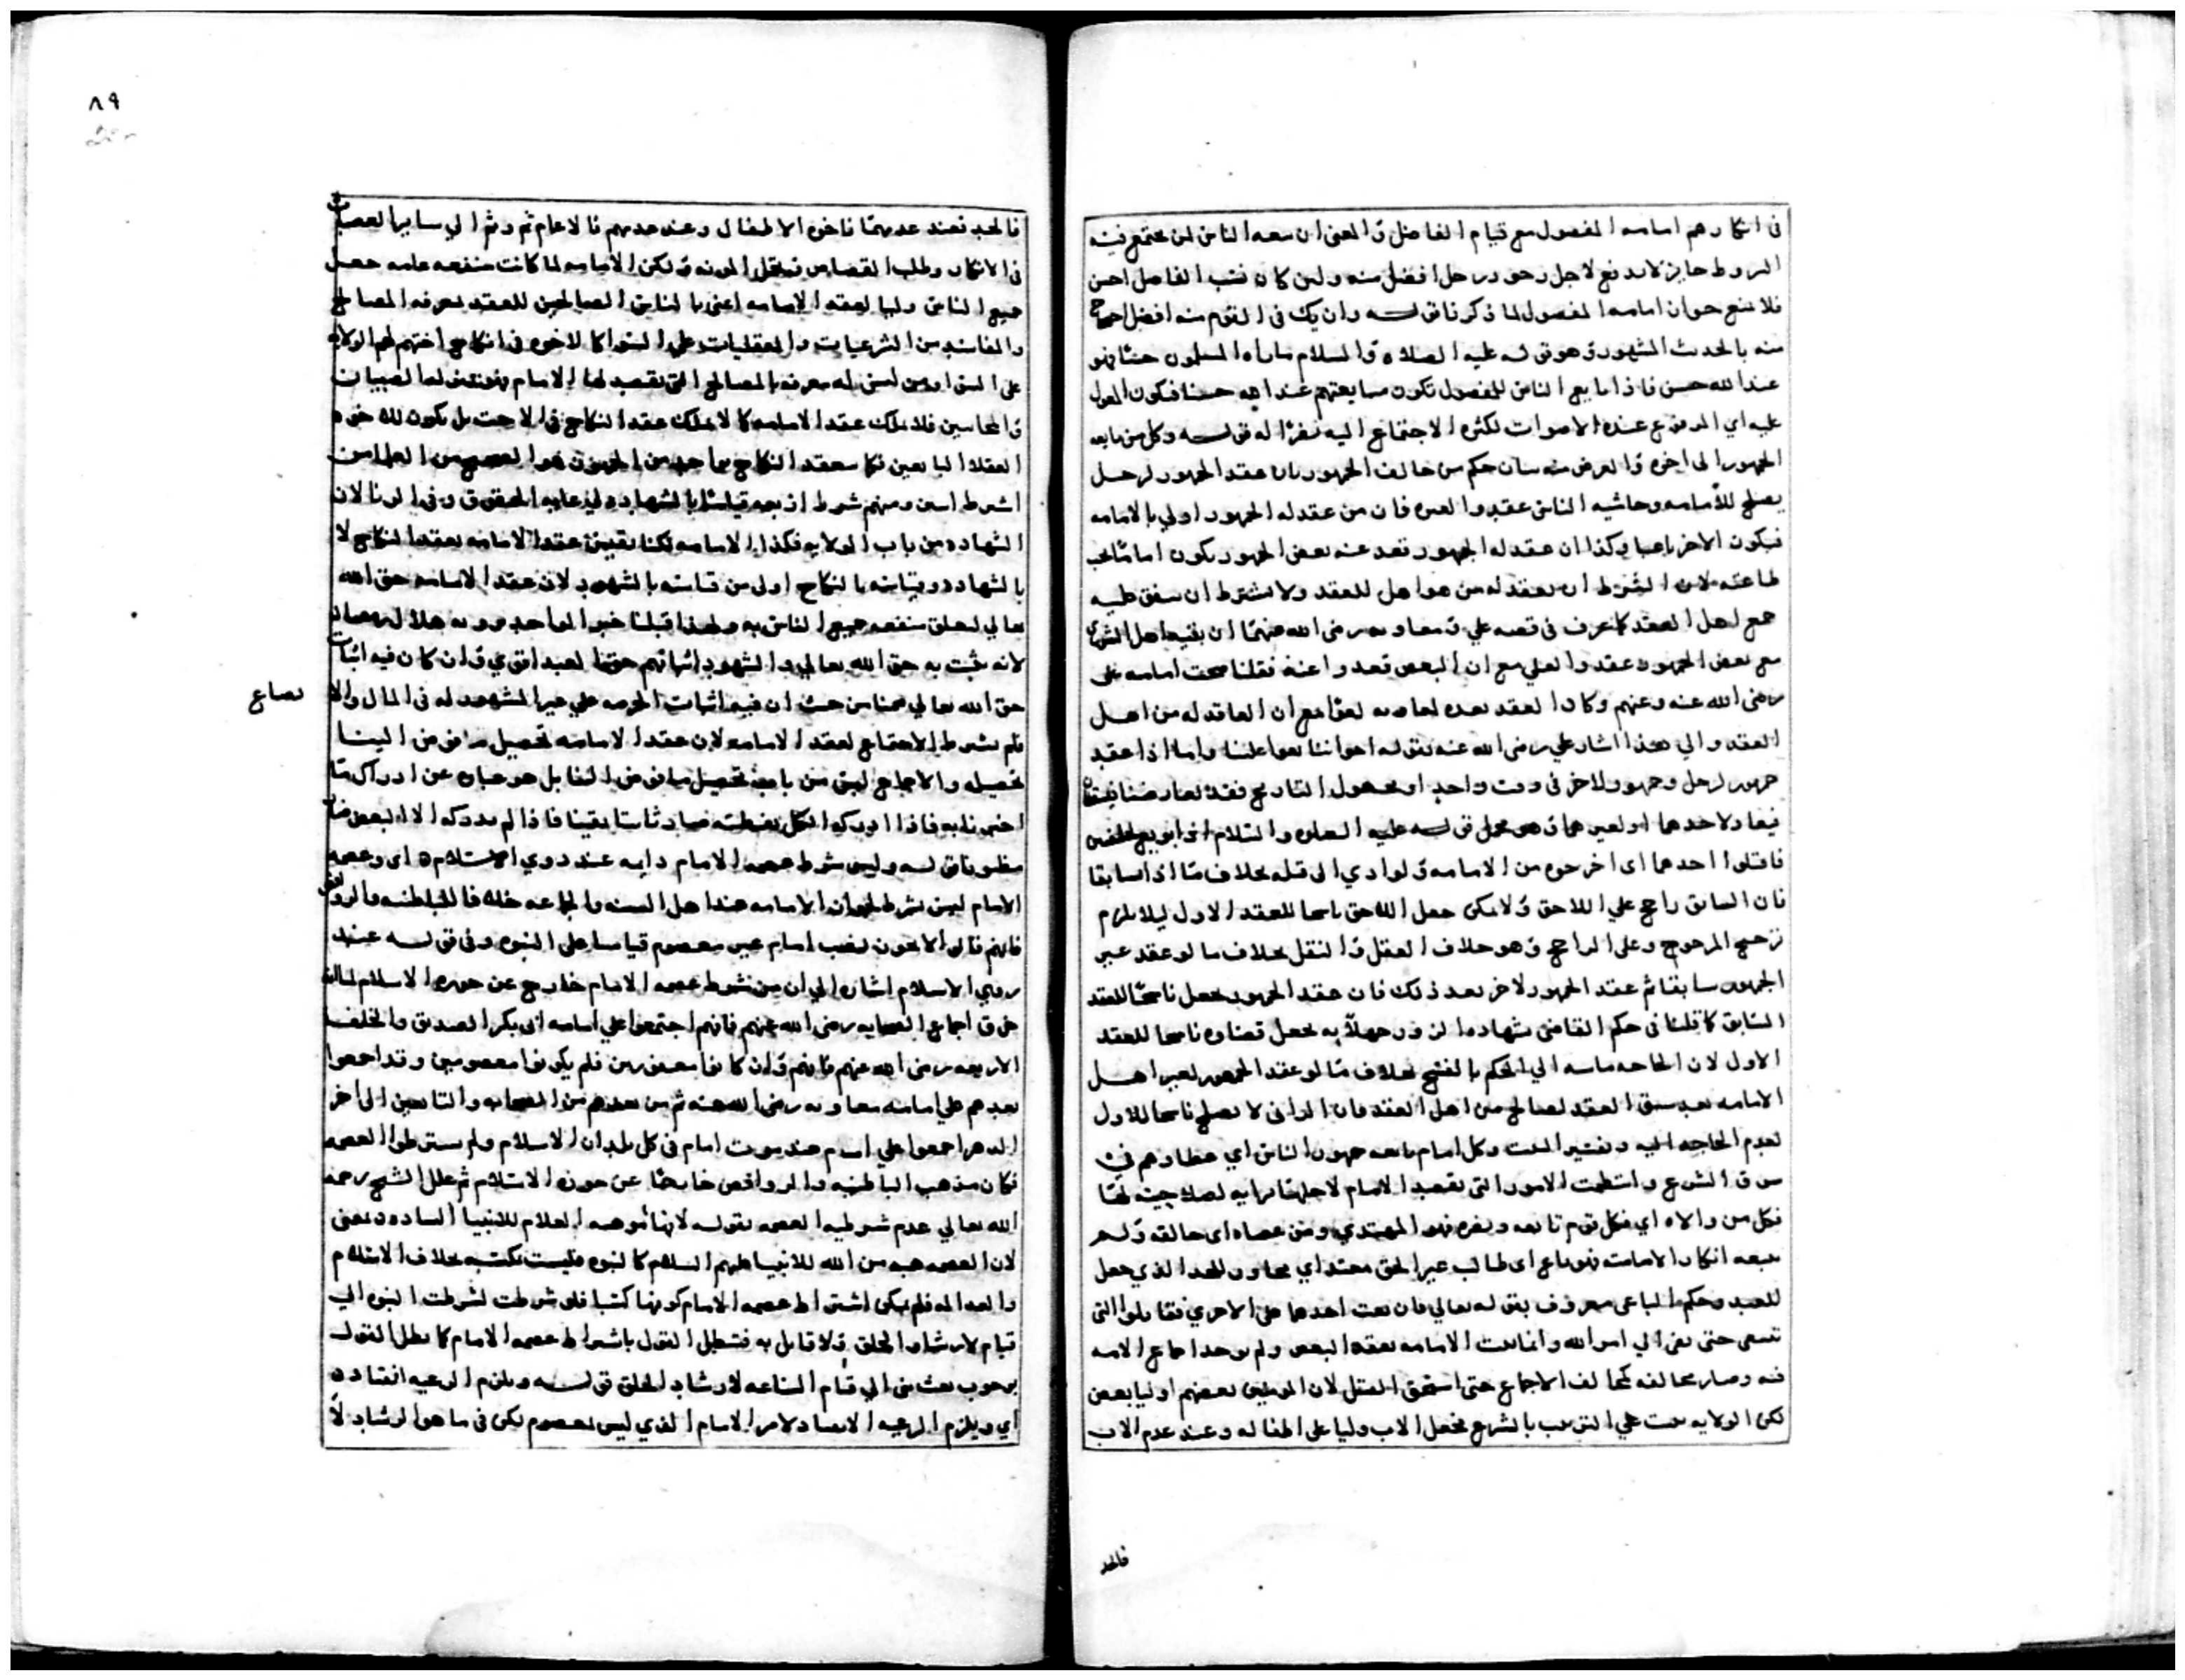 في انكارهم امامه المفضول مع قيام الفاضل والمعنى ان سعه الناس لمن يجتمع فيه
الشروط جايز لا يدفع لاجل وجود رجل افضل منه ولين كان نصب الفاضل احسن
فلا يمنع جواز امامه المفضول لما ذكرنا قوله وان يك في القوم منه افضل احتج
منه بالحديث المشهور وهو قوله عليه الصلاه والسلام ما راه المسلمون حسنا فهو
عند الله حسن فاذا بايع الناس للمفضول تكون مبايعتهم عند الله حسنا فيكون المعول
عليه اي المرفوع عنده الاصوات لكثره الاجتماع اليه نفرا له قوله وكل من بايعه
الجمهور الى اخره والغرض منه بيان حكم من خالف الجمهور بان عقد الجمهور لرجل
يصلح للأمامه وحاشيه الناس عقدوا لغيره فان من عقد له الجمهور اولي بالامامه
فيكون الاخر باغيا وكذا ان عقد له الجمهور بعد عنه بعض الجمهور يكون اماما يجب
طاعته لان الشرط ان يعقد له من هو اهل للعقد ولا يشترط ان يتفق عليه
جمع اهل العقد كما عرف في قصه علي ومعاويه رضى الله عنهما ان بقيه اهل الشورى
مع بعض الجمهور عقدوا لعلي مع ان البعض قعدوا عنه فقلنا صحت امامه على
رضى الله عنه وعنهم وكان العقد بعده لمعاويه لغوا مع ان العاقد له من اهل
العقد والي هذا اشار علي رضى الله عنه بقوله اخواننا بغوا علينا واما اذا عقد
جمهور لرجل وجمهور لاخر في وقت واحد او مجهول التاريخ فقد تعارضا
فيعاد لاحدهما او لغيرهما وهو محمل قوله عليه الصلاه والسلام اذا بويع لخليفتين
فاقتلوا احدهما اى اخرجوه من الامامه ولو ادي الى قتله بخلاف ما اذا سابقا
فان السابق راجح على اللاحق ولا يمكن جعل اللاحق ناسخا للعقد الاول ليلا يلزم
ترجيح المرجوح وعلى الراجح وهو خلاف العقل والنقل بخلاف ما لو عقد غير
الجمهور سابقا ثم عقد الجمهور لاخر بعد ذلك فان عقد الجمهور يجعل ناسخا للعقد
السابق كما قلنا في حكم القاضي بشهاده الزور جهلا به يجعل قضاوه ناسخا للعقد
الاول لان الحاجه ماسه الي الحكم بالفسخ بخلاف ما لو عقد الجمهور لغير اهل
الامامه بعد سبق العقد لصالح من اهل العقد فان الثانى لا يصلح ناسخا للاول
لعدم الحاجه اليه وتفسير البيت وكل امام بايعه جمهور الناس اي عظماوهم في
سوق الشرع وانتظمت الامور التى يقصد الامام لاجلها برايه لصلاحيته لها
فكل من والاه اي فكل قوم تابعه ونصره فهو المهتدي ومن عصاه اى خالفه ولم
يتبعه انكارا لامامته فهو باغ اى طالب غير الحق معتد اي مجاوز للحد الذي جعل
للعبد وحكم الباغى معروف بقوله تعالي فان بغت احدهما على الاخري فقاتلوا التى
تبغى حتى تفى الي امر الله وانما ثبت الامامه بعقد البعض ولم يوجد اجماع الامه
فيه وصار مخالفه كمخالف الاجماع حتى استحق القتل لان المومنين بعضهم اوليا بعض
لكن الولايه تثبت على الترتيب بالشرع فجعل الاب وليا على اطفاله وعند عدم الاب
فالجد
٨٩
فالجد فعند عدمهما فاخوه الاطفال وعند عدمهم فالاعمام ثم وثم الي ساير العصبات
في الانكاح وطلب القصاص ونقل المونه ولكن الامامه لما كانت منفعه عامه جعل
جميع الناس وليا لعقد الامامه اعنى بالناس الصالحين للعقد لمعرفه المصالح
والمفاسد من الشرعيات والعقليات على السوا كالاخوه في انكاح اختهم لهم الولايه
على السوا ومن ليس له معرفه بالمصالح التى يقصد لها الامام فهو بمنزله الصبيان
والمجانين فلا يملك عقد الامامه كما لا يملك عقد النكاح في الاخت بل يكون للاخوه
العقلا البالغين فكما ينعقد النكاح بواحد من الجمهور هو الصحيح من العلما من
اشرط اسين ومنهم شرط اربعه قياسا بالشهاده لرعايه الحقوق وفي الزنا لان
الشهاده من باب الولايه فكذا الامامه لكنا نقيس عقد الامامه بعقد النكاح لا
بالشهاده وقياسه بالنكاح اولى من قياسه بالشهود لان عقد الامامه حق الله
تعالي لتعلق منفعه جميع الناس به ولهذا قبلنا خبر الواحد في رويه هلال رمضان
لانه يثبت به حق الله تعالي والشهود اثباتهم حق العبد اقوي وان كان فيه اثبات
حق الله تعالي ضمنا من حيث ان فيه اثبات الحرمه على غير المشهود له في المال والابضاع
ولم يشرط الاجماع لعقد الامامه لان عقد الامامه تحصيل ما فوض الينا
تحصيله والاجماع ليس من باب تحصيل ما فوض القابل هو عباره عن ادراك ما
اختى نابه فاذا ادركه الكل بفطنته صار ثابتا يقينا فاذا لم يدركه الا البعض صار
مظنونا قوله وليس شرط عصمه الامام دايه عند ذوي الاسلام اى وعصمه
الامام ليس بشرط لجواز الامامه عند اهل السنه والجماعه خلافا للباطنيه والروافض
فانهم قالوا لا يجوز نصب امام غير معصوم قياسا على النبوه وفي قوله عند
ذوي الاسلام اشاره الي ان من شرط عصمه الامام خارج عن حوزه الاسلام لمخالفه
خرق اجماع الصحابه رضى الله عنهم فانهم اجتمعوا على امامه ابى بكر الصديق والخلفا
الاربعه رضى الله عنهم فانهم وان كانوا مغفورين فلم يكونوا معصومين وقد اجمعوا
بعدهم على امامه معاويه رضى الله عنه ثم من بعدهم من الصحابه والتابعين الى اخر
الدهر اجمعوا على امام عند موت امام في كل بلدان الاسلام ولم يشترطوا العصمه
فكان مذهب الباطنيه والروافض خارجا عن حوزه الاسلام ثم علل الشيخ رحمه
الله تعالي عدم شرطيه العصمه بقوله لانها موهبه العلام للانبيا الساده يعنى
لان العصمه هبه من الله للانبيا عليهم السلام كالنبوه فليست بكتسبه بخلاف الاسلام
والعداله فلم يمكن اشتراط عصمه الامام كونها كتسبا فلو شرطت لشرطت النبوه الي
قيام لارشاد الخلق ولا قايل به فبطل القول باشتراط عصمه الامام كما بطل القول
بوجوب بعث نبي الي قيام الساعه لارشاد الخلق قوله ويلزم الرعيه انقياده
اي ويلزم الرعيه الانقياد لامر الامام الذي ليس بمعصوم لكن في ما هو الرشاد لا
بضاع